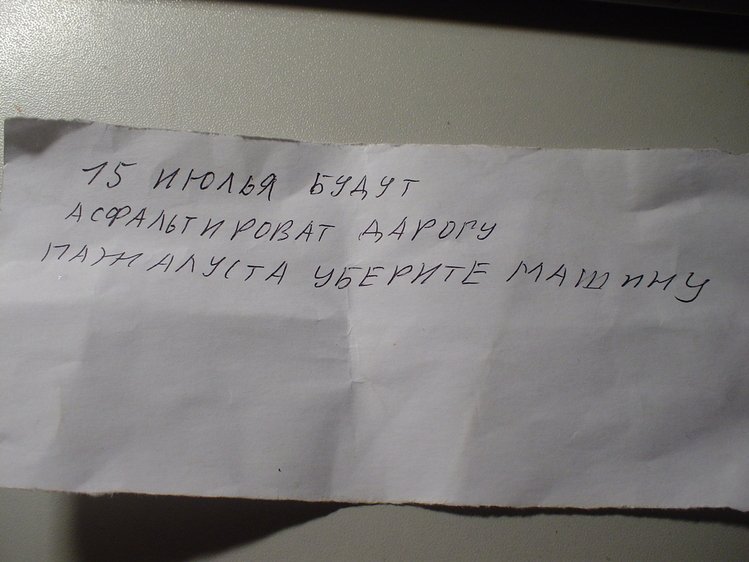 15 ИЮЛЬЯ БУДУТ
АСФАЛЬТИРОВАТ ДАРОГУ
ПАЖАЛУСТА УБЕРИТЕ МАШИНУ